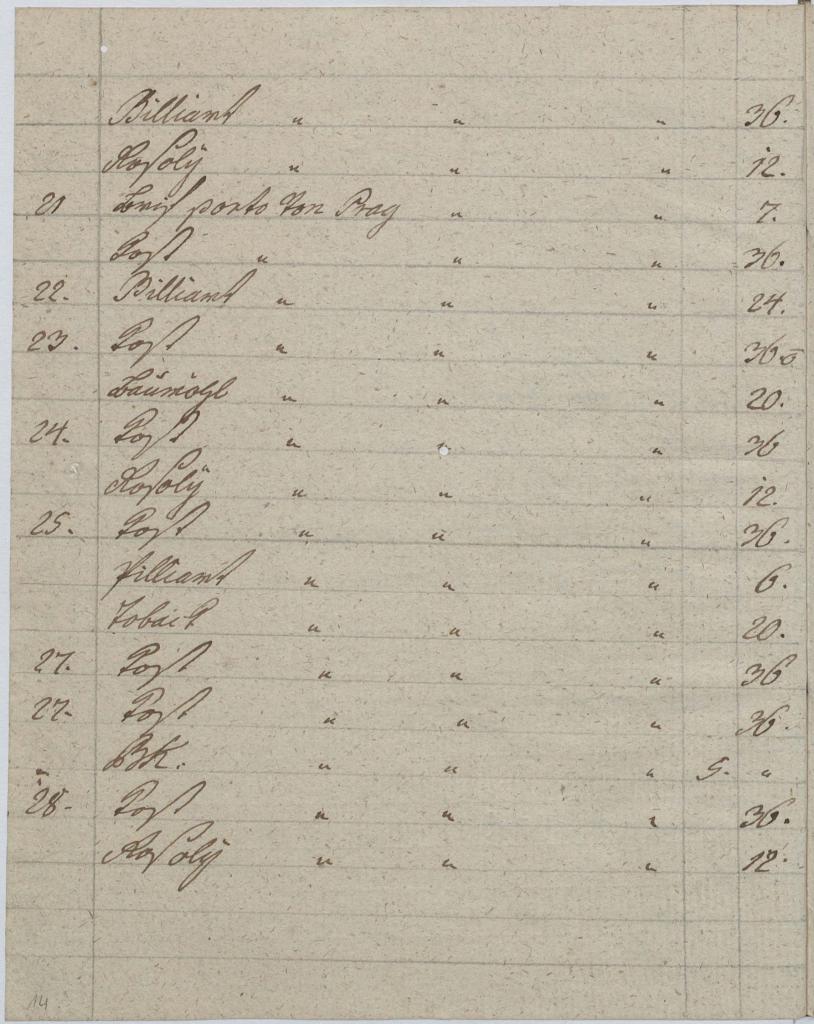 Billiart " " " 36.
Rosoly " " " 12.
21 Brif porto Von Prag " " 7.
Kost " " " 36.
22. Billiart " " " 24.
23. Kost " " " 36.
Baumöhl " " " 20.
24. Kost " " " 36
Rosoly " " " 12.
25. Kost " " " 36.
Pilliart " " " 6.
Toback " " " 20.
27. Kost " " " 36
27. Kost " " " 36.
" BK. " " " 5. "
28. Kost " " " 36.
Rosoly " " " 12.
14